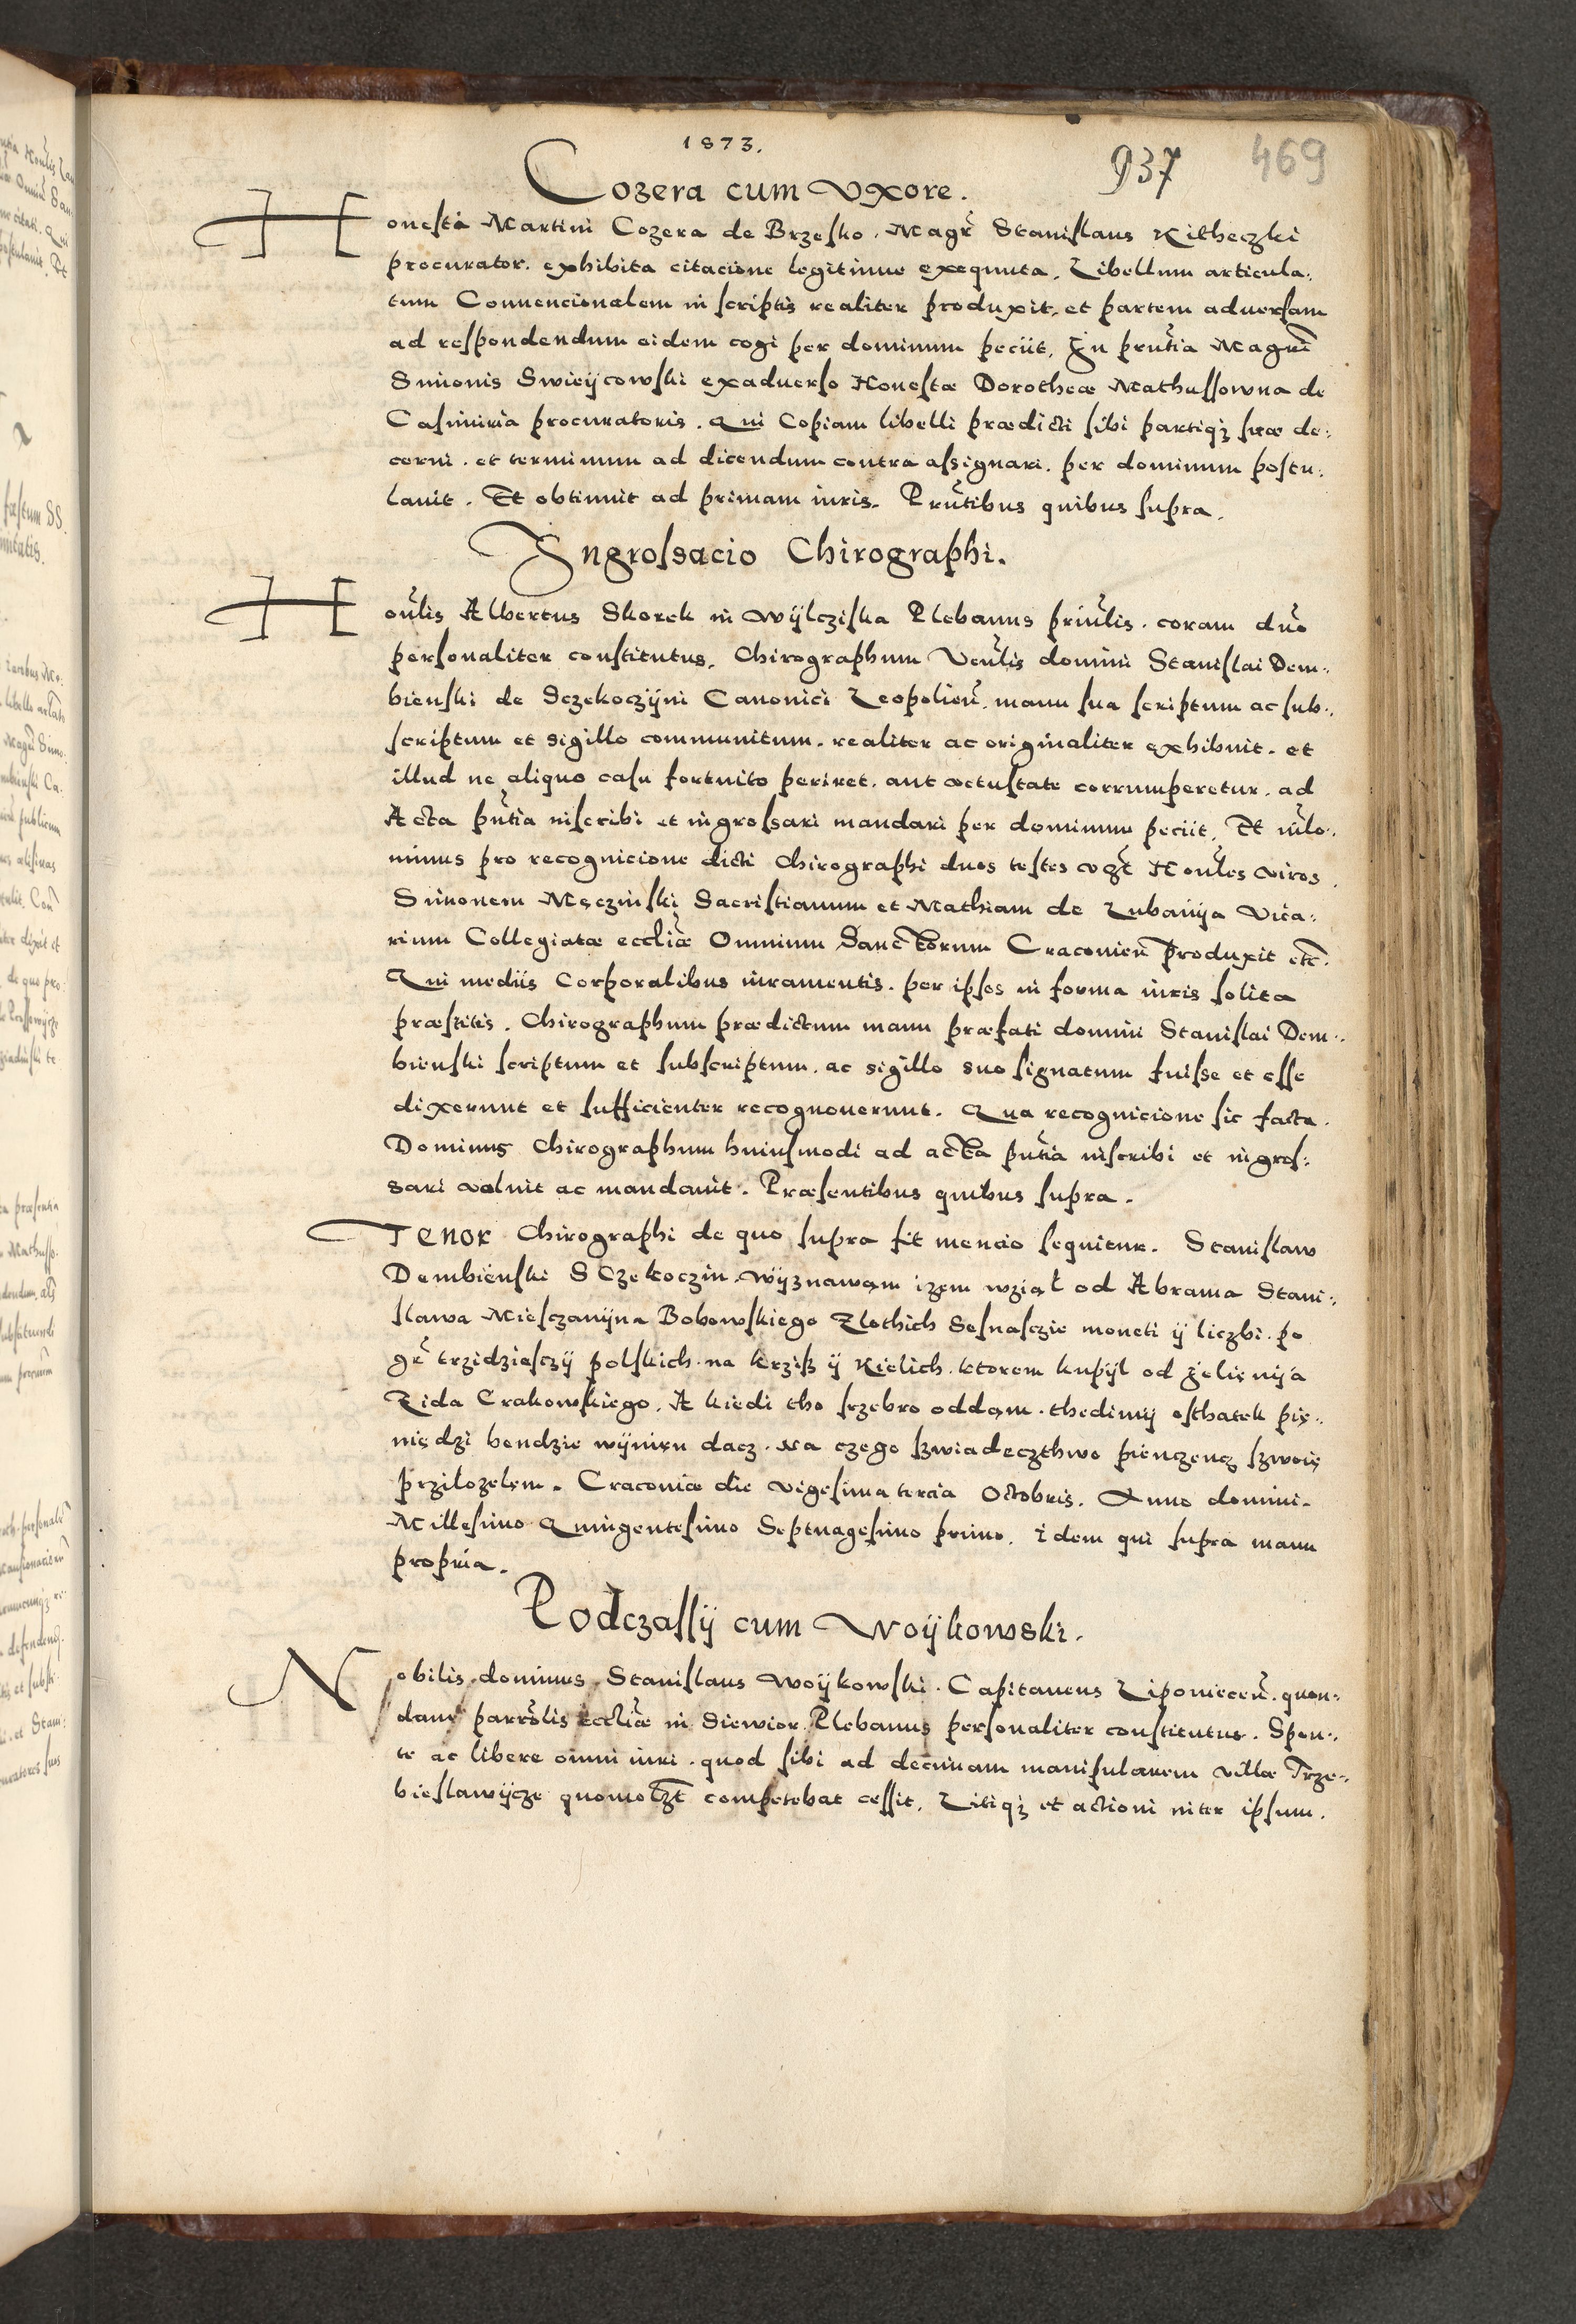 1573.
937 469
Cozera cum Vxore.
Honesti Martini Cozera de Brzesko. Magr̃ Stanislaus Kitheczki
procurator. exhibita citacione legitime exequuta. Libellum articula:
tum Conuencionalem in scriptis realiter produxit. et partem aduersam
ad respondendum eidem cogi per dominum peciit, In pñtia Magrĩ
Simonis Swieycowski exaduerso Honestæ Dorotheæ Mathussowna de
Casimiria procuratoris. Qui Copiam libelli prædicti sibi partiqȝ suæ de:
cerni. et terminum ad dicendum contra assignari. per dominum postu:
lauit. Et obtinuit ad primam iuris. Pñtibus quibus supra.
Ingrossacio Chirographi.
Hoñlis Albertus Skorek in Wylcziska Plebanus priñlis. coram dño
personaliter constitutus. Chirographum Veñlis domini Stanislai Dem:
bienski de Sczekoczyni Canonici Leopolieñ. manu sua scriptum ac sub:
scriptum et sigillo communitum. realiter ac originaliter exhibuit. et
illud ne aliquo casu fortuito periret. aut vetustate corrumperetur. ad
Acta pñtia inscribi et ingrossari mandari per dominum peciit, Et nĩlo:
minus pro recognicione dicti Chirographi duos testes vȝt Hoñles viros.
Simonem Męczinski Sacristianum et Mathiam de Lubanya Vica:
rium Collegiatæ eccliæ Omnium Sanctorum Cracouieñ produxit etc̃.
Qui mediis Corporalibus iuramentis. per ipsos in forma iuris solita
præstitis. Chirographum prædictum manu præfati domini Stanislai Dem:
bienski scriptum et subscriptum. ac sigillo suo signatum fuisse et esse
dixerunt et sufficienter recognouerunt. Qua recognicione sic facta.
Dominus Chirographum huiusmodi ad acta pñtia inscribi et ingros:
sari voluit ac mandauit. Præsentibus quibus supra.
Tenor Chirographi de quo supra fit mencio sequitur. Stanislaw
Dembienski S Czekoczin. wyznawam izem wziął od Abrama Stani:
slawa Miesczanyna Bobowskiego Zlothich Sesnasczie moneti y liczbi. po
gr̃ trzidziesczy polskich. na krziß y Kielich. ktorem kupyl od żelięnya
Zida Crakowskiego. A kiedi tho srzebro oddąm. thedimy osthatek pię:
niędzi bendzie wynięn dacz. Na czego szwiadeczthwo pienczencz szwoię
przilozelęm. Cracouiæ die vigesima tercia Octobris. Anno domini.
Millesimo Quingentesimo Septuagesimo primo. idem qui supra manu
propria.
Podczassy cum Woykowski.
Nobilis dominus Stanislaus Woykowski. Capitaneus Lipowieceñ. quon:
dam parrõlis eccliæ in Siewior Plebanus personaliter constitutus. Spon:
te ac libere omni iuri. quod sibi ad decimam manipularem villæ Trze:
bieslawycze quomolȝt competebat cessit, Litiqȝ et actioni inter ipsum.